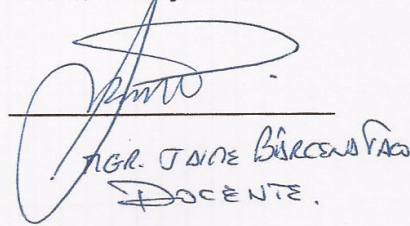 MGR. JAIME BÁRCENA TACO
DOCENTE.